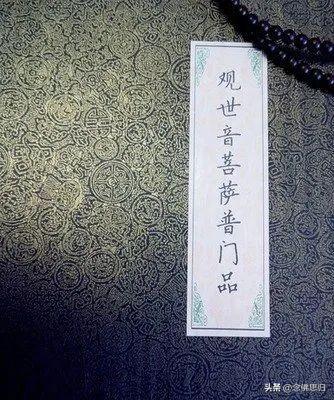 观世音菩萨普门品
头条@念佛思归